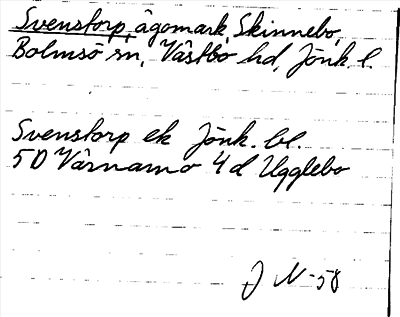 Svenstorp, ägomark, Skinnebo,
Bolmsö sn, Västbo hd, Jönk. l.
Svenstorp ek Jönk. bl.
5D Värnamo 4d Ugglebo
J N-58